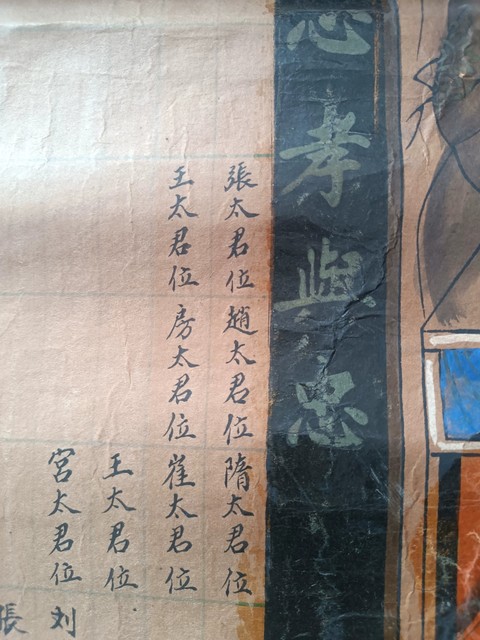 孝與忠
張太君位 趙太君位 隋太君位
王太君位 房太君位 崔太君位
王太君位
宮太君位
刘
張